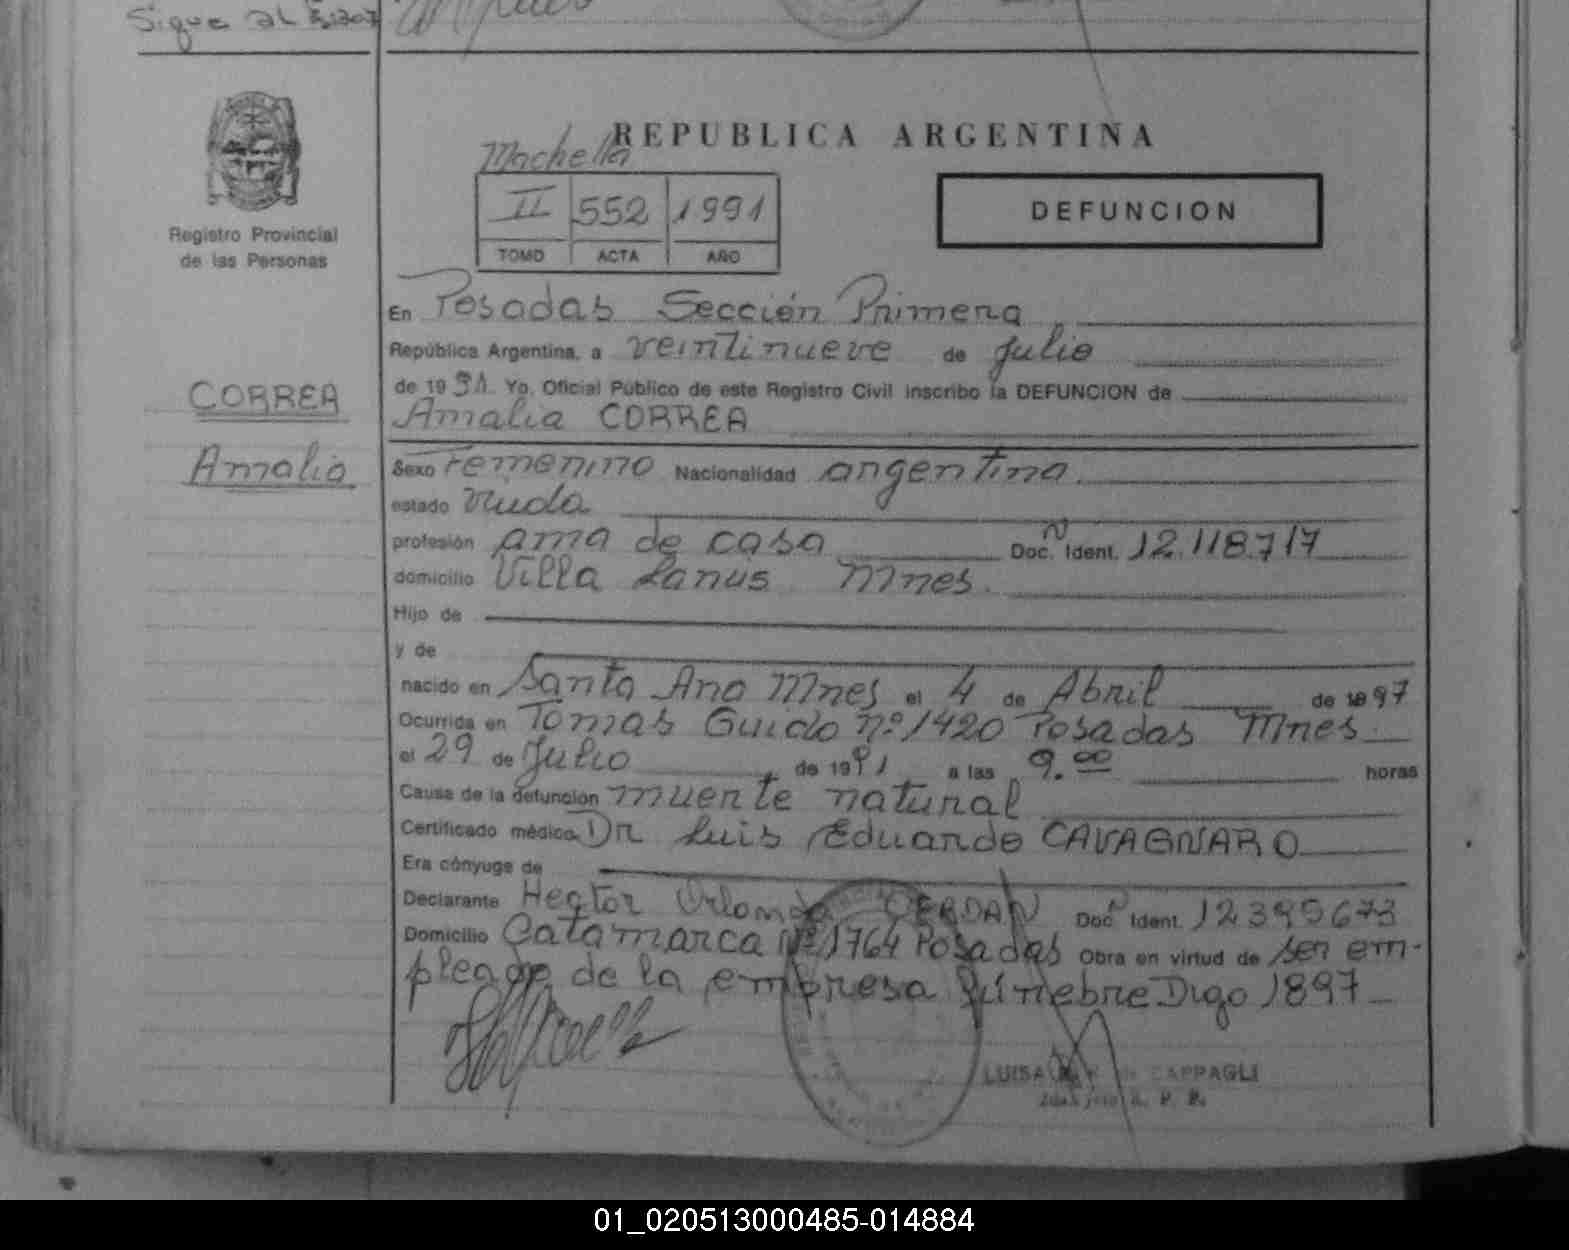 Sigue al
REPUBLICA ARGENTINA
Machella
II 552 1991
TOMO ACTA AÑO
DEFUNCION
Registro Provincial
de las Personas
CORREA
Amalia
En Posadas Sección Primera
República Argentina, a veintinueve de Julio
de 1991. Yo, Oficial Público de este Registro Civil inscribo la DEFUNCION de
Amalia CORREA
Sexo Femenino Nacionalidad argentina.
estado viuda
profesión ama de casa Doc. N Ident. 12.118.717
domicilio Villa Lanús Mnes.
Hijo de
y de
nacido en Santa Ana Mnes el 4 de Abril de 1897
Ocurrida en Tomas Guido nº 1420 Posadas Mnes.
el 29 de Julio de 1991 a las 9.00 horas
Causa de la defunción muerte natural
Certificado médico Dr Luis Eduardo CAVAGNARO
Era cónyuge de
Declarante Hector Orlando CERDAN Doc. N Ident. 12395673
Domicilio Catamarca Nº 1764 Posadas Obra en virtud de ser em-
pleado de la empresa fúnebre Digo 1897
LUISA CAPPAGLI
R. P. P.
01_020513000485-014884